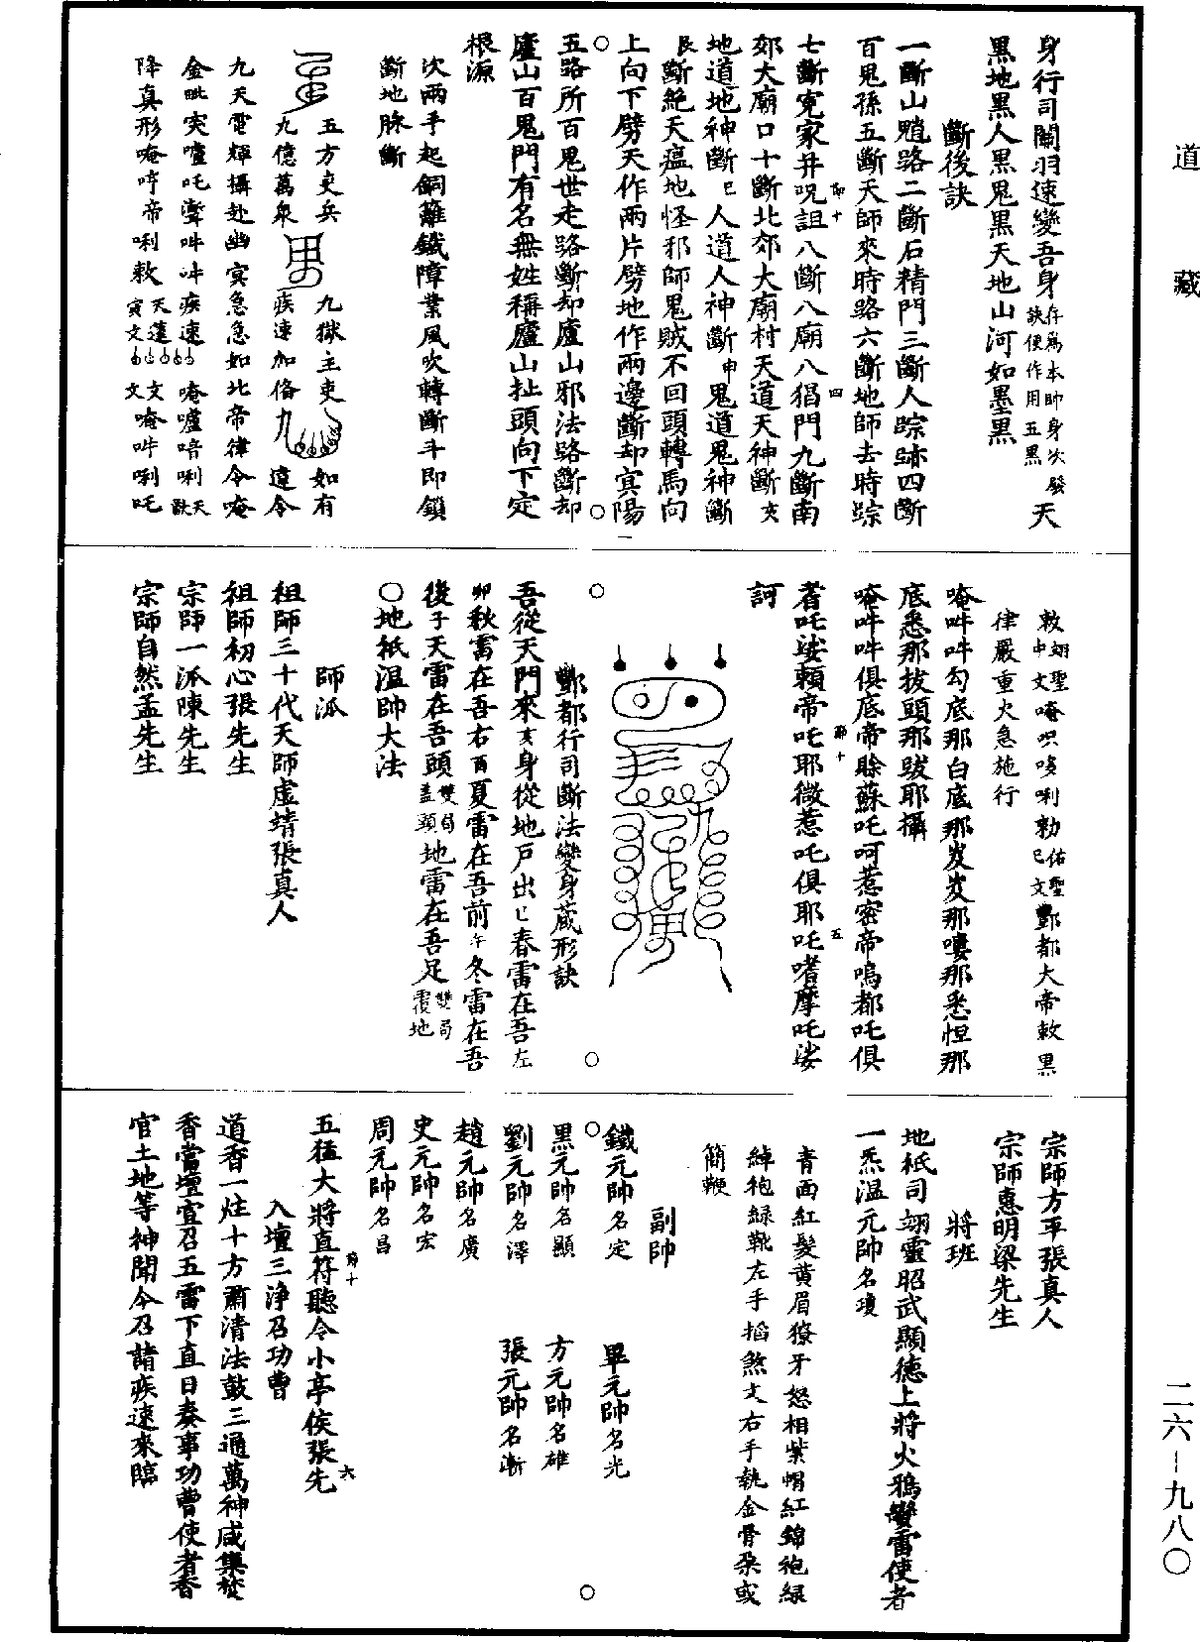 道藏
身行司關羽速變吾身存爲本帥身次發訣便作用五黑天
黑地黑人黑鬼黑天地山河如墨黑
斷後訣
一斷山魈路二斷石精門三斷人踪跡四斷
百鬼孫五斷天師來時路六斷地師去時踪
七斷寃家井呪詛八斷八廟八猖門九斷南
郊大廟口十斷北郊大廟村天道天神斷亥
地道地神斷巳人道人神斷申鬼道鬼神斷
艮斷絶天瘟地怪邪師鬼賊不回頭轉馬向
上向下劈天作兩片劈地作兩邊斷却㝠陽
五路所百鬼世走路斷却廬山邪法路斷却
廬山百鬼門有名無姓稱廬山扯頭向下定
根源
次兩手起銅籬鐵障業風吹轉斷斗即鎖
斷地脉斷
五方吏兵 九獄主吏 如有
九億萬衆 疾速加俻 違令
九天電輝攝赴幽㝠急急如北帝律令唵
金毗突嚧吒聾吽吽疾速唵嚧喑唎天猷
降真形唵哼帝唎敕天蓬寅文文唵吽唎吒
敕翊聖中文唵唎勑佑聖巳文酆都大帝敕黑
律嚴重火急施行
唵吽吽勾底那白底那岌岌那嘍那悉怛那
底悉那拔頭那跋耶攝
唵吽吽俱底帝睒蘇吒呵惹密帝嗚都吒俱
着吒娑賴帝吒耶微惹吒俱耶吒嗜摩吒娑
訶
酆都行司斷法變身蔵形訣
吾從天門來亥身從地戶出巳春雷在吾左
卯秋雷在吾右酉夏雷在吾前午冬雷在吾
後子天雷在吾頭雙局蓋頭地雷在吾足雙局覆地
○地祇温帥大法
師派
祖師三十代天師虚靖張真人
祖師初心張先生
宗師一派陳先生
宗師自然孟先生
宗師方平張真人
宗師惠明梁先生
將班
地祇司翊靈昭武顯德上將火鴉鑾雷使者
一炁温元帥名瓊
青面紅髮黄眉獠牙怒相紫帽紅錦袍緑
綽袍緑靴左手搯煞文右手執金骨朶或
簡鞭
副帥
鐵元帥名定 畢元帥名光
黑元帥名顯 方元帥名雄
劉元帥名澤 張元帥名漸
趙元帥名廣
史元帥名宏
周元帥名昌
五猛大將直符聽令小亭侯張先
入壇三浄召功曹
道香一炷十方肅清法鼓三通萬神咸集焚
香當壇宣召五雷下直日奏事功曹使者香
官土地等神聞今召請疾速來臨
二六－九八〇